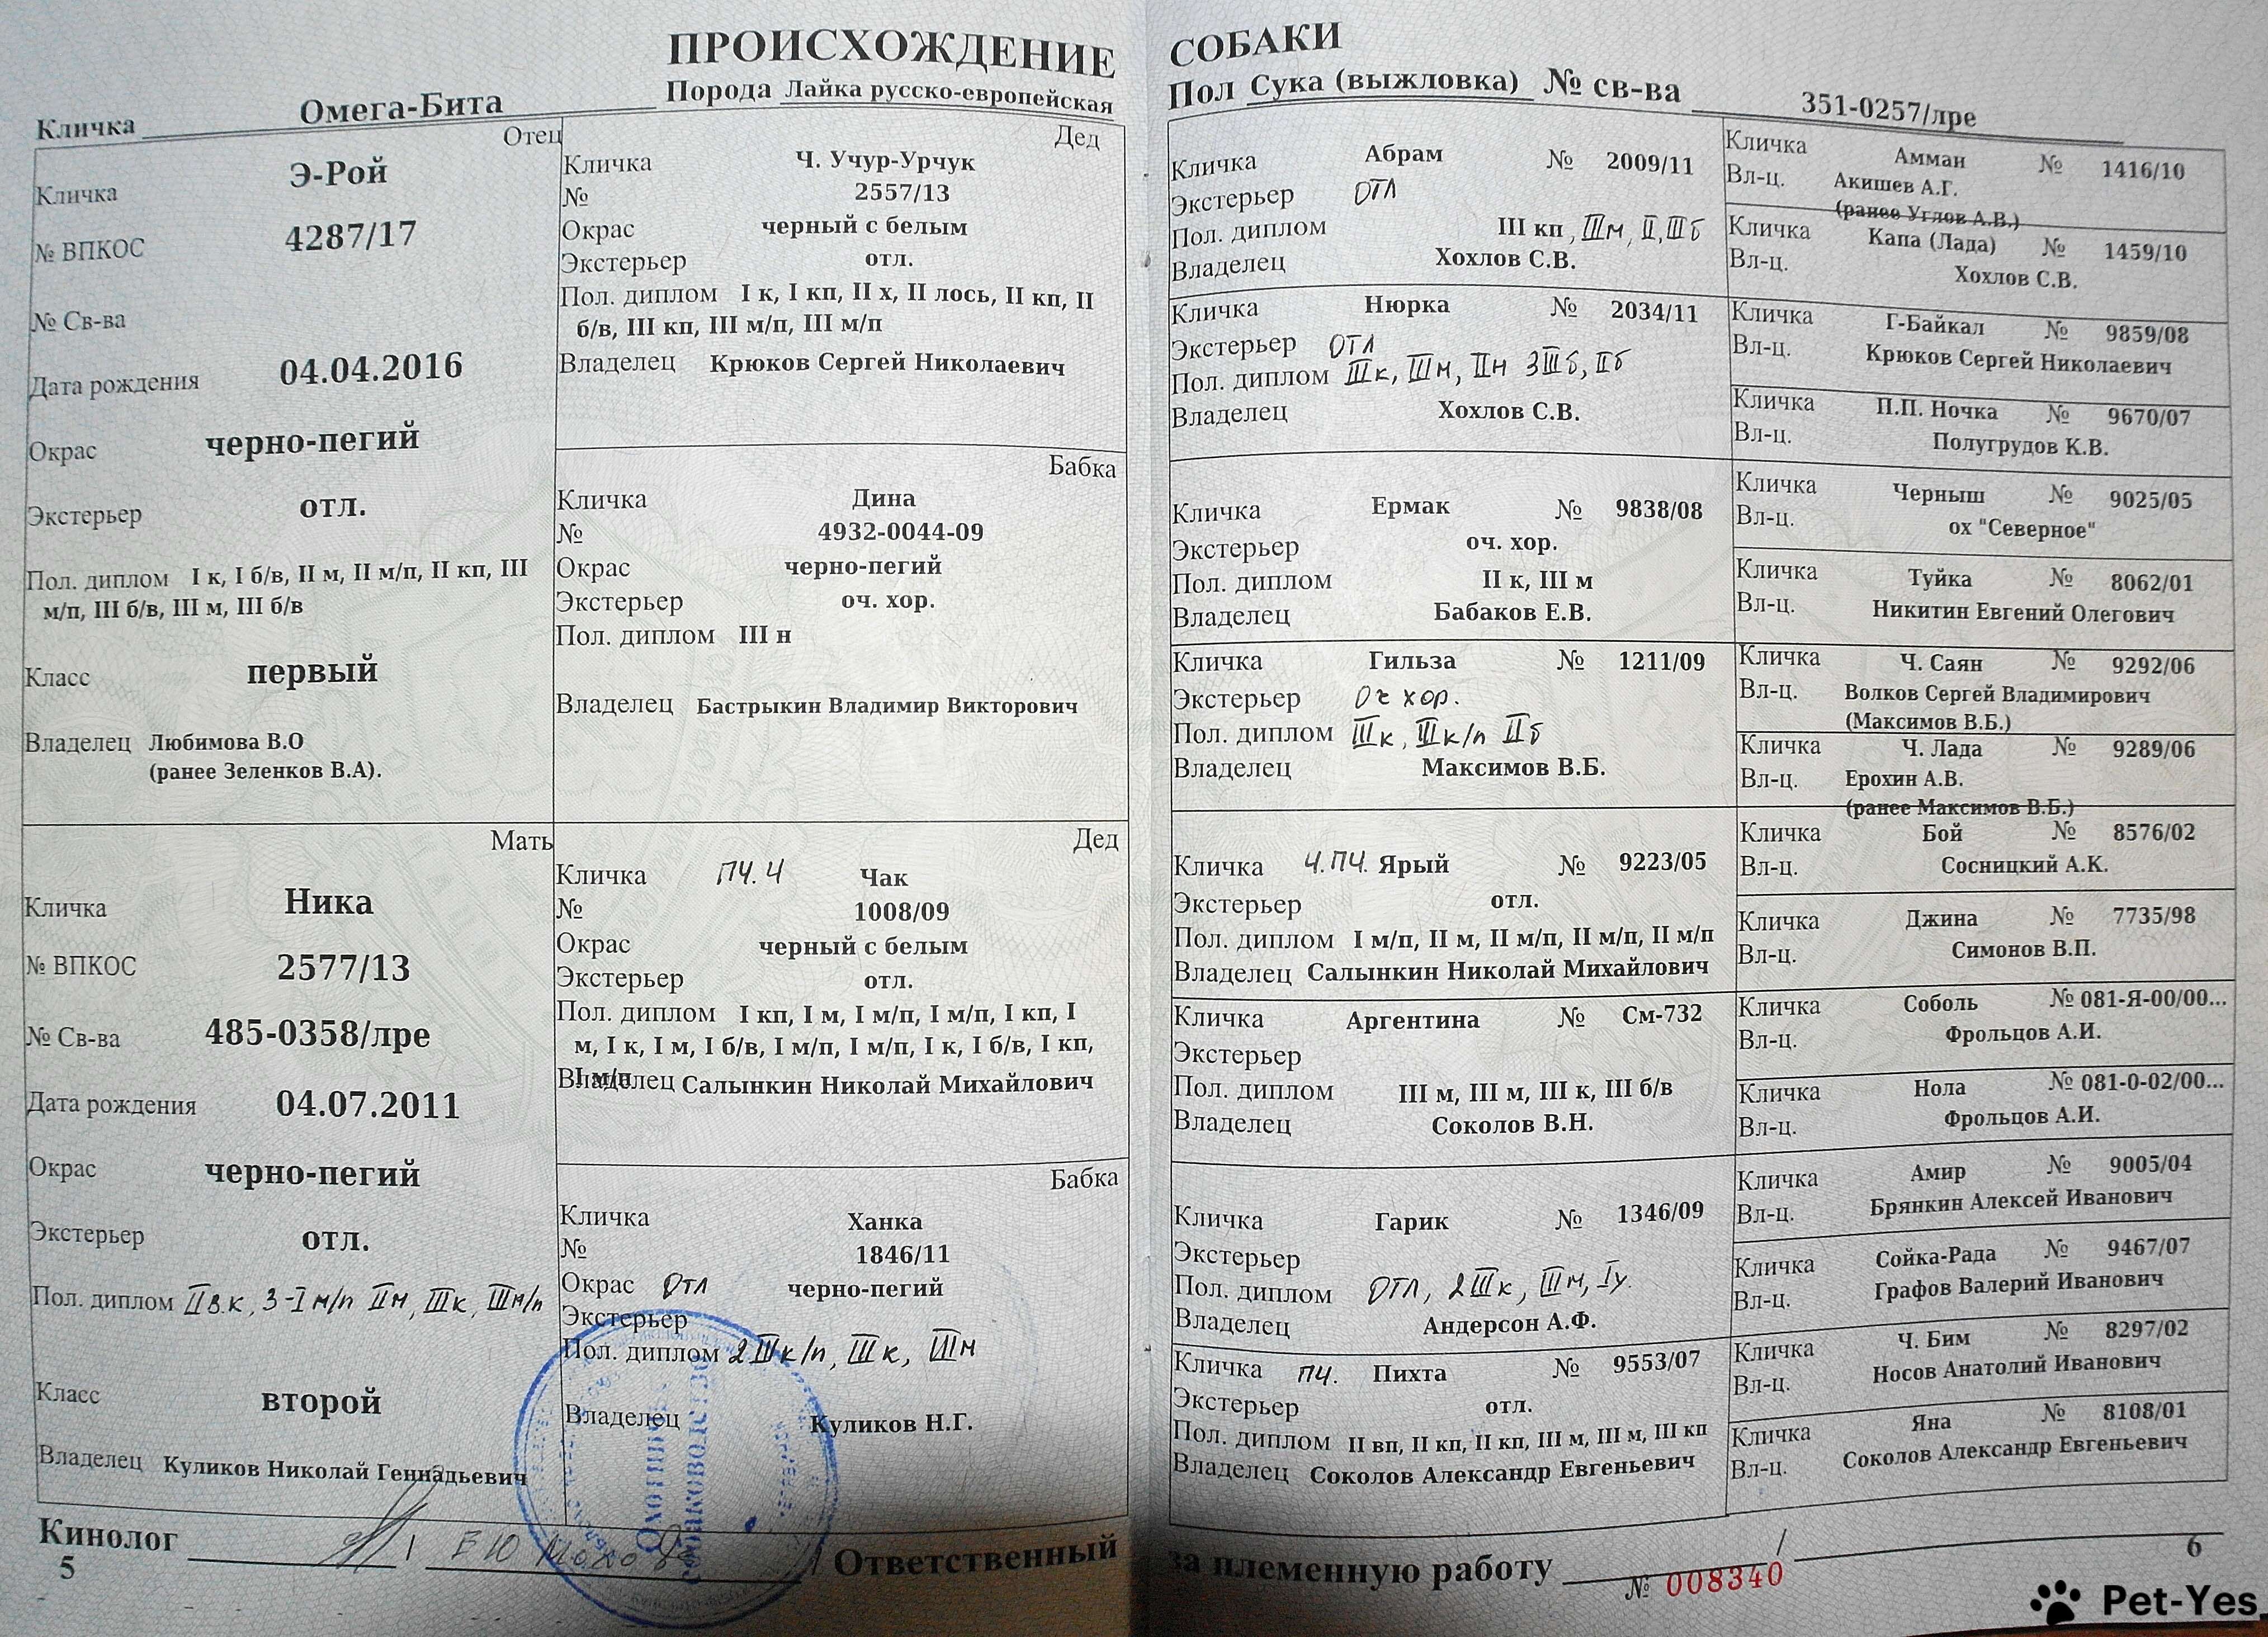 ПРОИСХОЖДЕНИЕ
Кличка Омега-Бита Порода Лайка русско-европейская
Отец
Кличка Э-Рой
№ ВПКОС 4287/17
№ Св-ва
Дата рождения 04.04.2016
Окрас черно-пегий
Экстерьер отл.
Пол. диплом I к, I б/в, II м, II м/п, II кп, III
м/п, III б/в, III м, III б/в
Класс первый
Владелец Любимова В.О
(ранее Зеленков В.А).
Дед
Кличка Ч. Учур-Урчук
№ 2557/13
Окрас черный с белым
Экстерьер отл.
Пол. диплом I к, I кп, II х, II лось, II кп, II
б/в, III кп, III м/п, III м/п
Владелец Крюков Сергей Николаевич
Бабка
Кличка Дина
№ 4932-0044-09
Окрас черно-пегий
Экстерьер оч. хор.
Пол. диплом III н
Владелец Бастрыкин Владимир Викторович
Мать
Кличка Ника
№ ВПКОС 2577/13
№ Св-ва 485-0358/лре
Дата рождения 04.07.2011
Окрас черно-пегий
Экстерьер отл.
Пол. диплом II в.к, 3-I м/п II м, III к, III м/п
Класс второй
Владелец Куликов Николай Геннадьевич
Дед
Кличка ПЧ. Ч Чак
№ 1008/09
Окрас черный с белым
Экстерьер отл.
Пол. диплом I кп, I м, I м/п, I м/п, I кп, I
м, I к, I м, I б/в, I м/п, I м/п, I к, I б/в, I кп,
I м/п
Владелец Салынкин Николай Михайлович
Бабка
Кличка Ханка
№ 1846/11
Окрас ОТЛ черно-пегий
Экстерьер
Пол. диплом 2 III к/п, III к, III м
Владелец Куликов Н.Г.
Охотничье
собаководство
Кинолог Е Ю Ответственный
5
СОБАКИ
Пол Сука (выжловка) № св-ва 351-0257/лре
Кличка Абрам № 2009/11
Экстерьер ОТЛ
Пол. диплом III кп, III м, II, III б
Владелец Хохлов С.В.
Кличка Нюрка № 2034/11
Экстерьер ОТЛ
Пол. диплом III к, III м, II н 3 III б, II б
Владелец Хохлов С.В.
Кличка Ермак № 9838/08
Экстерьер оч. хор.
Пол. диплом II к, III м
Владелец Бабаков Е.В.
Кличка Гильза № 1211/09
Экстерьер Оч хор.
Пол. диплом III к, III к/п II б
Владелец Максимов В.Б.
Кличка Ч.ПЧ. Ярый № 9223/05
Экстерьер отл.
Пол. диплом I м/п, II м, II м/п, II м/п, II м/п
Владелец Салынкин Николай Михайлович
Кличка Аргентина № См-732
Экстерьер
Пол. диплом III м, III м, III к, III б/в
Владелец Соколов В.Н.
Кличка Гарик № 1346/09
Экстерьер
Пол. диплом ОТЛ, 2 III к, III м, I у.
Владелец Андерсон А.Ф.
Кличка ПЧ. Пихта № 9553/07
Экстерьер отл.
Пол. диплом II вп, II кп, II кп, III м, III м, III кп
Владелец Соколов Александр Евгеньевич
Кличка Амман № 1416/10
Вл-ц. Акишев А.Г.
(ранее Углов А.В.)
Кличка Капа (Лада) № 1459/10
Вл-ц. Хохлов С.В.
Кличка Г-Байкал № 9859/08
Вл-ц. Крюков Сергей Николаевич
Кличка П.П. Ночка № 9670/07
Вл-ц. Полугрудов К.В.
Кличка Черныш № 9025/05
Вл-ц. ох "Северное"
Кличка Туйка № 8062/01
Вл-ц. Никитин Евгений Олегович
Кличка Ч. Саян № 9292/06
Вл-ц. Волков Сергей Владимирович
(Максимов В.Б.)
Кличка Ч. Лада № 9289/06
Вл-ц. Ерохин А.В.
(ранее Максимов В.Б.)
Кличка Бой № 8576/02
Вл-ц. Сосницкий А.К.
Кличка Джина № 7735/98
Вл-ц. Симонов В.П.
Кличка Соболь № 081-Я-00/00...
Вл-ц. Фрольцов А.И.
Кличка Нола № 081-0-02/00...
Вл-ц. Фрольцов А.И.
Кличка Амир № 9005/04
Вл-ц. Брянкин Алексей Иванович
Кличка Сойка-Рада № 9467/07
Вл-ц. Графов Валерий Иванович
Кличка Ч. Бим № 8297/02
Вл-ц. Носов Анатолий Иванович
Кличка Яна № 8108/01
Вл-ц. Соколов Александр Евгеньевич
за племенную работу /
№ 008340
6
Pet-Yes